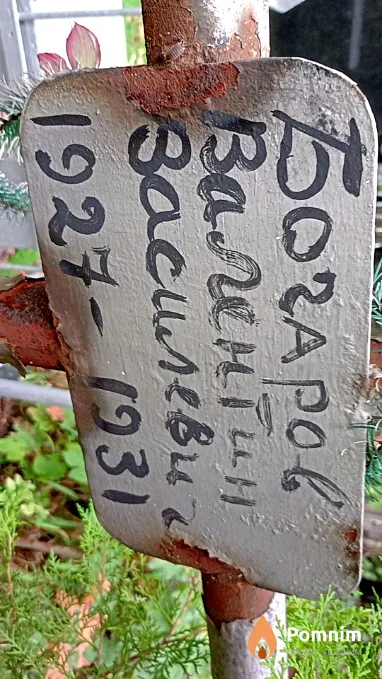 Бочаров
Валентин
Василевич
1927-1931
Pomnim